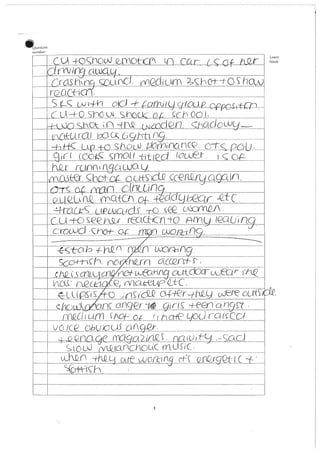 Question number
Leave blank
CU to show emotion in car LS of her
driving away.
Crashing sound. medium 2 shot to show
reaction.
SFS with old + family group opposition
CU to show shock of school.
two shot in the wooden shadowy
natural back lighting.
tilts up to show dominance. OTS POV
girl looks small titled lower is of
her running away
master shot of outside scenery again.
OTS of man drilling
eyeline match of teddy bear etc.
tracks upwards to see women.
CU to see her reaction to Amy leaving
crowd shot of men working.
Estab then men working.
Scottish northern accents.
she is only one not wearing outdoor wear she
has necklace, makeup etc.
ellipsis to inside after they were outside
shows mans anger girls teen angst.
medium shot of "i hate you raiscol
voice obvious anger.
teenage magazines naivity - sad
slow melancholic music.
when they are working it's energetic +
Scottish.